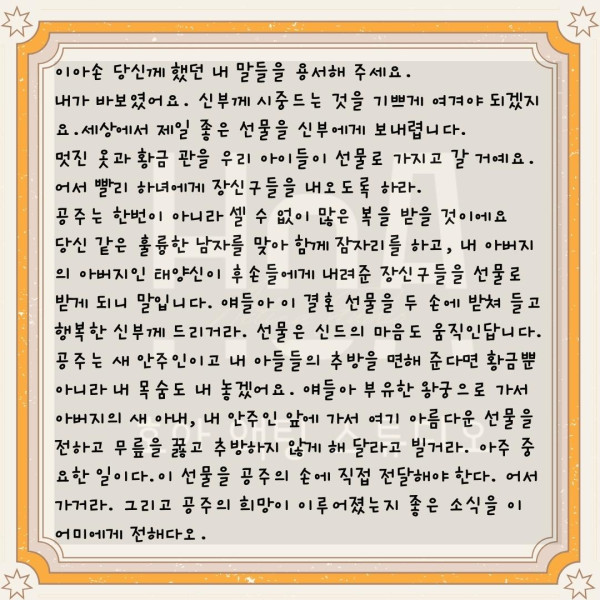 이아손 당신께 했던 내 말들을 용서해 주세요.
내가 바보였어요. 신부께 시중드는 것을 기쁘게 여겨야 되겠지
요.세상에서 제일 좋은 선물을 신부에게 보내렵니다.
멋진 옷과 황금 관을 우리 아이들이 선물로 가지고 갈 거예요.
어서 빨리 하녀에게 장신구들을 내오도록 하라.
공주는 한번이 아니라 셀 수 없이 많은 복을 받을 것이에요
당신 같은 훌륭한 남자를 맞아 함께 잠자리를 하고, 내 아버지
의 아버지인 태양신이 후손들에게 내려준 장신구들을 선물로
받게 되니 말입니다. 얘들아 이 결혼 선물을 두 손에 받쳐 들고
행복한 신부께 드리거라. 선물은 신드의 마음도 움직인답니다.
공주는 새 안주인이고 내 아들들의 추방을 면해 준다면 황금뿐
아니라 내 목숨도 내 놓겠어요. 얘들아 부유한 왕궁으로 가서
아버지의 새 아내, 내 안주인 앞에 가서 여기 아름다운 선물을
전하고 무릎을 꿇고 추방하지 않게 해 달라고 빌거라. 아주 중
요한 일이다.이 선물을 공주의 손에 직접 전달해야 한다. 어서
가거라. 그리고 공주의 희망이 이루어졌는지 좋은 소식을 이
어미에게 전해다오.
HnA
호아 액팅 스튜디오